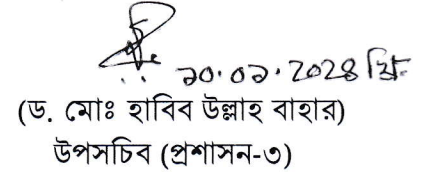 ১০.০১.২০২৪ খ্রি:
(ড. মোঃ হাবিব উল্লাহ বাহার)
উপসচিব (প্রশাসন-৩)